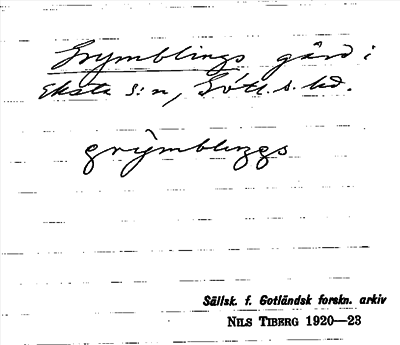 Grymblings gård i
Eksta s:n, Gotl. s. hd.
grymbliŋgs
Sällsk. f. Gotländsk forskn. arkiv
NILS TIBERG 1920—23